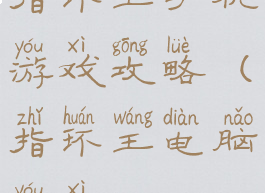 yóu xì gōng lüè
游戏攻略（
zhǐ huán wáng diàn nǎo
指环王电脑
yóu xì